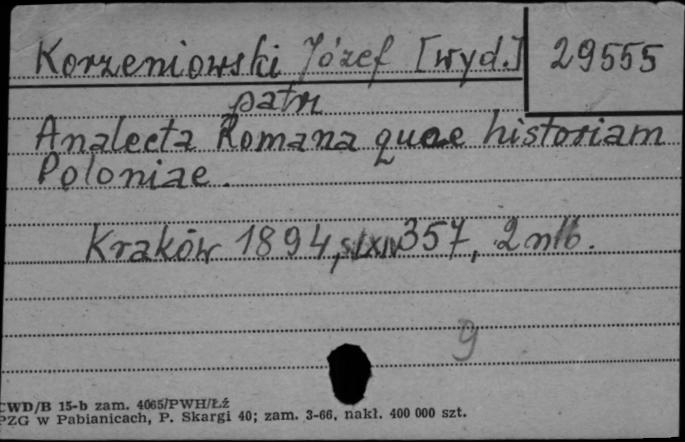 Korzeniowski Józef [wyd.] 29555
patrz
Analecta Romana quae historiam
Poloniae.
Kraków 1894, s. LXIV 357, 2 nlb.
9
CWD/B 15-b zam. 4065/PWH/Łź
PZG w Pabianicach, P. Skargi 40; zam. 3-66, nakł. 400 000 szt.